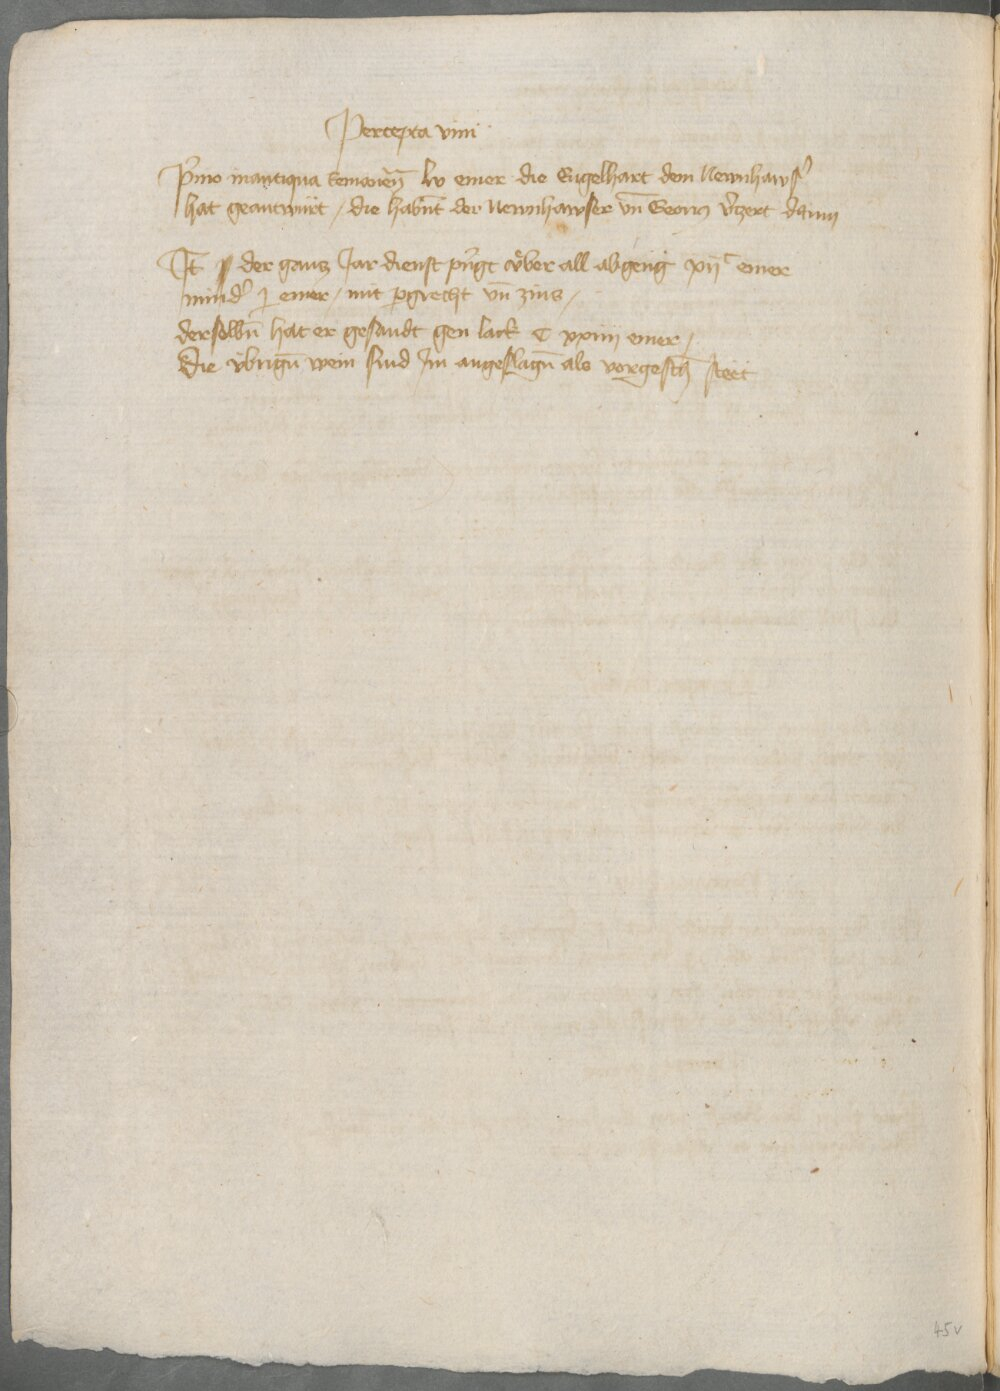 Percepta vini
Primo in antiqua remanen̄ lv emer die Engelhart dem Newnhawser
hat geantwurt / die habn̄t der Newnhawser vn̄ Georg v̓zert darin
It der gancz Jar dienst pringt vber all abgeng xij c emer
mind̓ j emer / mit pergrecht vn̄ zins /
derselbn̄ hat er gesandt gen lack C xxiiij emer /
Die vbrign̄ wein sind Jm angeslagn̄ als vorgesch steet
45v